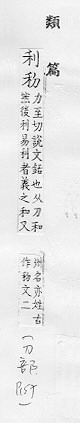 類篇
利𥝢
力至切説文銛也从刀和
然後利易利者義之和又
州名亦姓古
作𥝢文二
(刀部